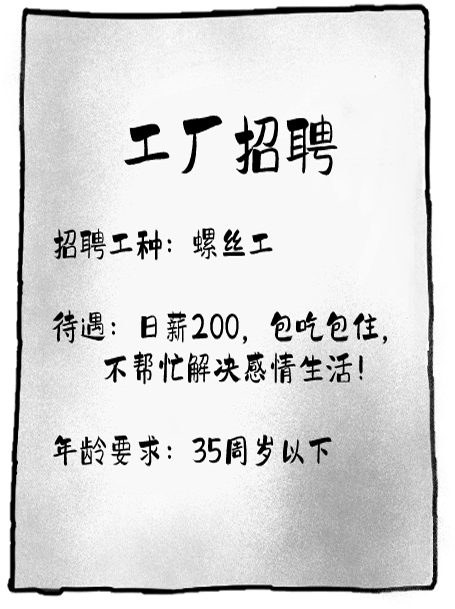 工厂招聘
招聘工种：螺丝工
待遇：日薪200，包吃包住，
不帮忙解决感情生活！
年龄要求：35周岁以下